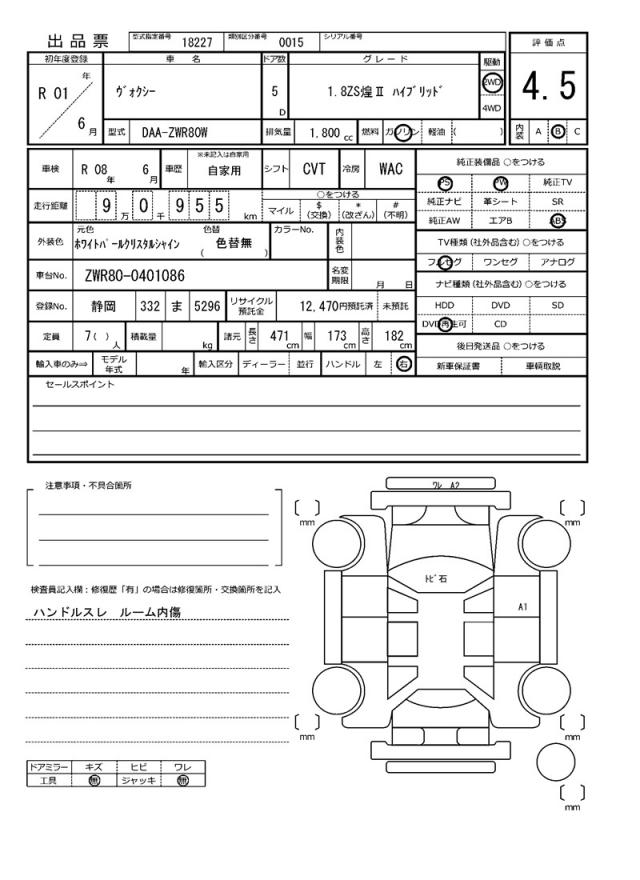 出品票 型式指定番号 18227 類別区分番号 0015 シリアル番号
評価点
4.5
内装 A B C
初年度登録 車名 ドア数 グレード 駆動
R 01 年 6 月 ヴォクシー 5 D 1.8ZS煌Ⅱ ハイブリッド 2WD 4WD
型式 DAA-ZWR80W 排気量 1.800 cc 燃料 ガソリン 軽油 ( )
車検 R 08 年 6 月 車歴 ※未記入は自家用 自家用 シフト CVT 冷房 WAC
走行距離 9 万 0 千 9 5 5 km ○をつける
マイル $ (交換) * (改ざん) # (不明)
外装色 元色 ホワイトパールクリスタルシャイン 色替 ( 色替無 ) カラーNo. 内装色
車台No. ZWR80-0401086 名変期限 月 日
登録No. 静岡 332 ま 5296 リサイクル預託金 12,470円預託済 未預託
定員 7( ) 人 積載量 kg 諸元 長さ 471 cm 幅 173 cm 高さ 182 cm
輸入車のみ⇒ モデル年式 年 輸入区分 ディーラー 並行 ハンドル 左 右
純正装備品 ○をつける
PS PW 純正TV
純正ナビ 革シート SR
純正AW エアB ABS
TV種類(社外品含む)○をつける
フルセグ ワンセグ アナログ
ナビ種類(社外品含む)○をつける
HDD DVD SD
DVD再生可 CD
後日発送品 ○をつける
新車保証書 車輌取説
セールスポイント
注意事項・不具合箇所
検査員記入欄:修復歴「有」の場合は修復箇所・交換箇所を記入
ハンドルスレ ルーム内傷
ドアミラー キズ ヒビ ワレ
工具 無 ジャッキ 無
ワレ A2
mm
mm
トビ石
A1
mm
mm
mm